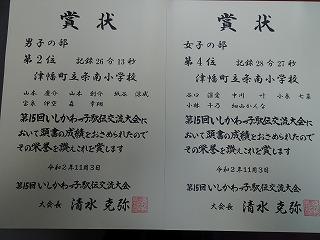 賞状
男子の部
第2位 記録26分13秒
津幡町立条南小学校
第15回いしかわっ子駅伝交流大会に
おいて頭書の成績をおさめられたので
その栄誉を讃えこれを賞します
令和2年11月3日
第15回いしかわっ子駅伝交流大会
大会長 清水克弥
賞状
女子の部
第4位 記録28分27秒
津幡町立条南小学校
第15回いしかわっ子駅伝交流大会に
おいて頭書の成績をおさめられたので
その栄誉を讃えこれを賞します
令和2年11月3日
第15回いしかわっ子駅伝交流大会
大会長 清水克弥